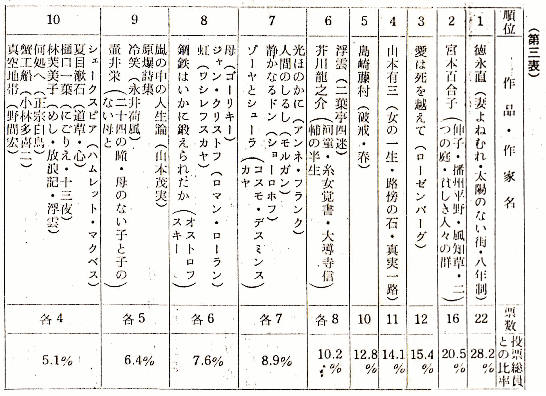 （第三表）
順位
作品・作家名
票数
投票総員との比率
1
徳永直（妻よねむれ・太陽のない街・八年制）
22
28.2%
2
宮本百合子（伸子・播州平野・風知草・二つの庭・貧しき人々の群
16
20.5%
3
愛は死を越えて（ローゼンバーグ）
12
15.4%
4
山本有三（女の一生・路傍の石・真実一路）
11
14.1%
5
島崎藤村（破戒・春）
10
12.8%
6
浮雲（二葉亭四迷）
芥川龍之介（河童・糸女覚書・大導寺信輔の半生
各8
10.2%
7
光ほのかに（アンネ・フランク）
人間のしるし（モルガン）
静かなるドン（ショーロホフ）
ゾーヤとシューラ（コスモ・デスミンスカヤ
各7
8.9%
8
母（ゴーリキー）
ジャン・クリストフ（ロマン・ローラン）
虹（ワシレフスカヤ）
鋼鉄はいかに鍛えられだか（オストロフスキー
各6
7.6%
9
嵐の中の人生論（山本茂実）
原爆詩集
冷笑（永井荷風）
壷井栄（二十四の瞳・母のない子と子のない母と
各5
6.4%
10
シェークスピア（ハムレット・マクベス）
夏目漱石（道草・心）
樋口一葉（にごりえ・十三夜）
林芙美子（めし・放浪記・浮雲）
何処へ（正宗白鳥）
蟹工船（小林多喜二）
真空地帯（野間宏）
各4
5.1%